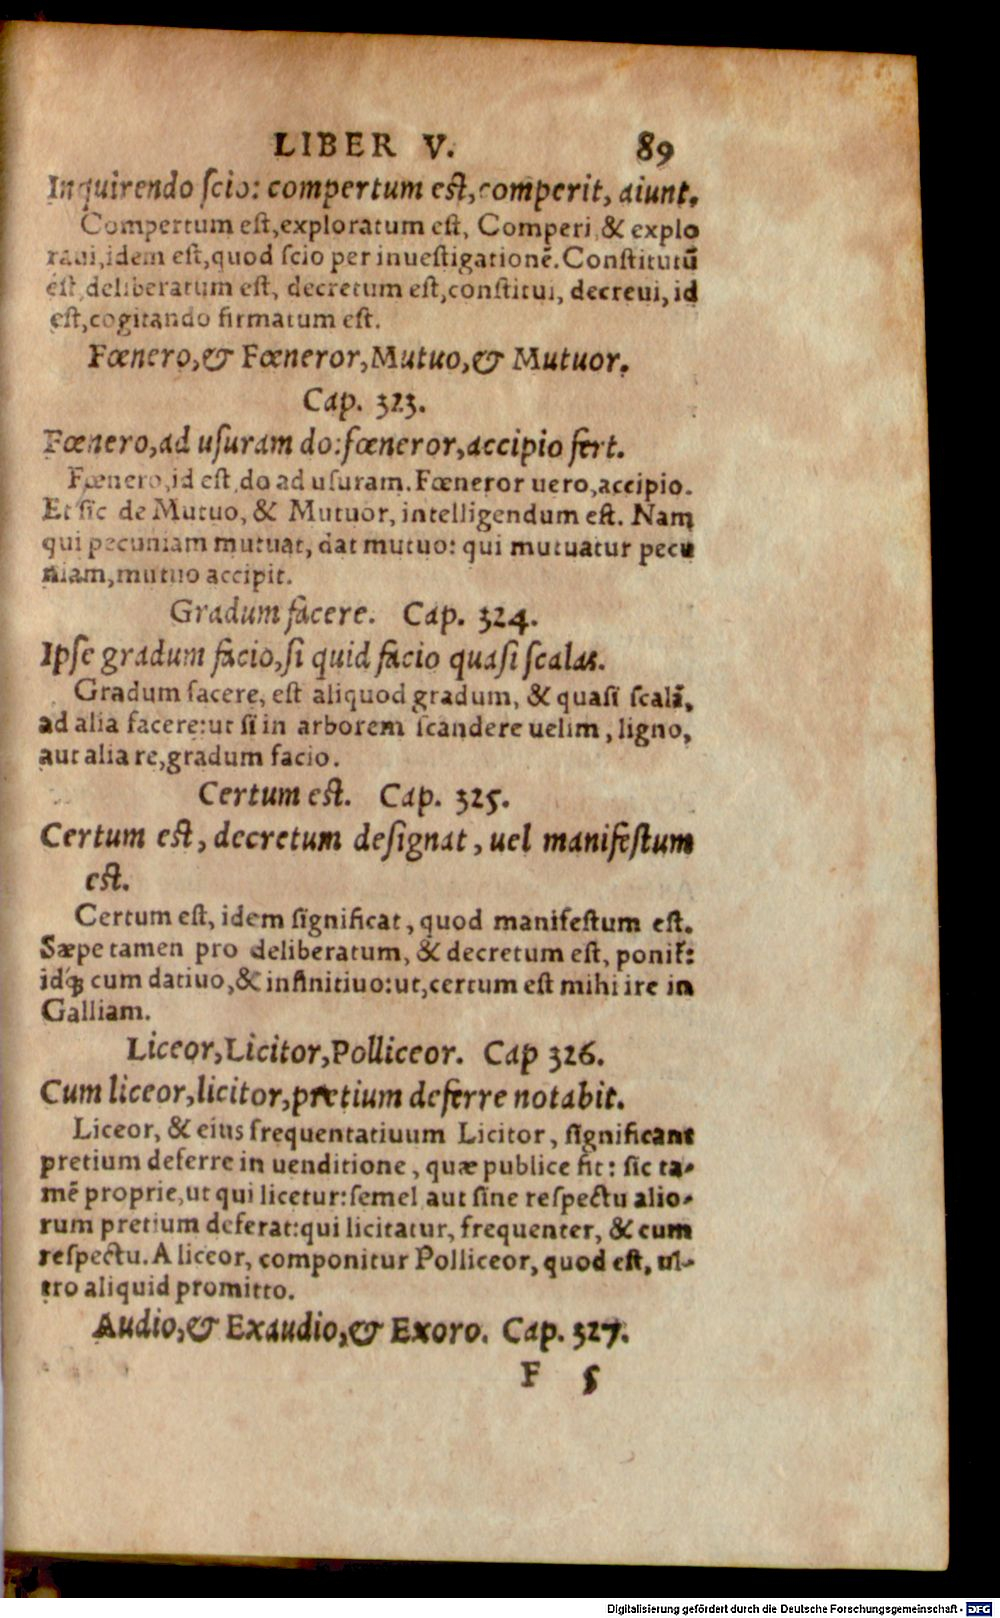 LIBER V. 89
Inquirendo ſcio: compertum eſt, comperit, aiunt.
Compertum eſt, exploratum eſt, Comperi, & explo
raui, idem eſt, quod ſcio per inueſtigationē. Conſtitutū
eſt, deliberatum eſt, decretum eſt, conſtitui, decreui, id
eſt, cogitando firmatum eſt.
Fœnero, & Fœneror, Mutuo, & Mutuor.
Cap. 323.
Fœnero, ad uſuram do: fœneror, accipio fert.
Fœnero, id eſt, do ad uſuram. Fœneror uero, accipio.
Et ſic de Mutuo, & Mutuor, intelligendum eſt. Nam
qui pecuniam mutuat, dat mutuo: qui mutuatur pecu
niam, mutuo accipit.
Gradum facere. Cap. 324.
Ipſe gradum facio, ſi quid facio quaſi ſcalas.
Gradum facere, eſt aliquod gradum, & quaſi ſcalā,
ad alia facere: ut ſi in arborem ſcandere uelim, ligno,
aut alia re, gradum facio.
Certum eſt. Cap. 325.
Certum eſt, decretum deſignat, uel manifeſtum
eſt.
Certum eſt, idem ſignificat, quod manifeſtum eſt.
Sæpe tamen pro deliberatum, & decretum eſt, ponit᷑:
idq́ꝫ cum datiuo, & infinitiuo: ut, certum eſt mihi ire in
Galliam.
Liceor, Licitor, Polliceor. Cap 326.
Cum liceor, licitor, pretium deferre notabit.
Liceor, & eius frequentatiuum Licitor, ſignificant
pretium deferre in uenditione, quæ publice fit: ſic ta-
mē proprie, ut qui licetur: ſemel aut ſine reſpectu alio-
rum pretium deferat: qui licitatur, frequenter, & cum
reſpectu. A liceor, componitur Polliceor, quod eſt, ul-
tro aliquid promitto.
Audio, & Exaudio, & Exoro. Cap. 327.
F 5
Digitalisierung gefördert durch die Deutsche Forschungsgemeinschaft - DFG